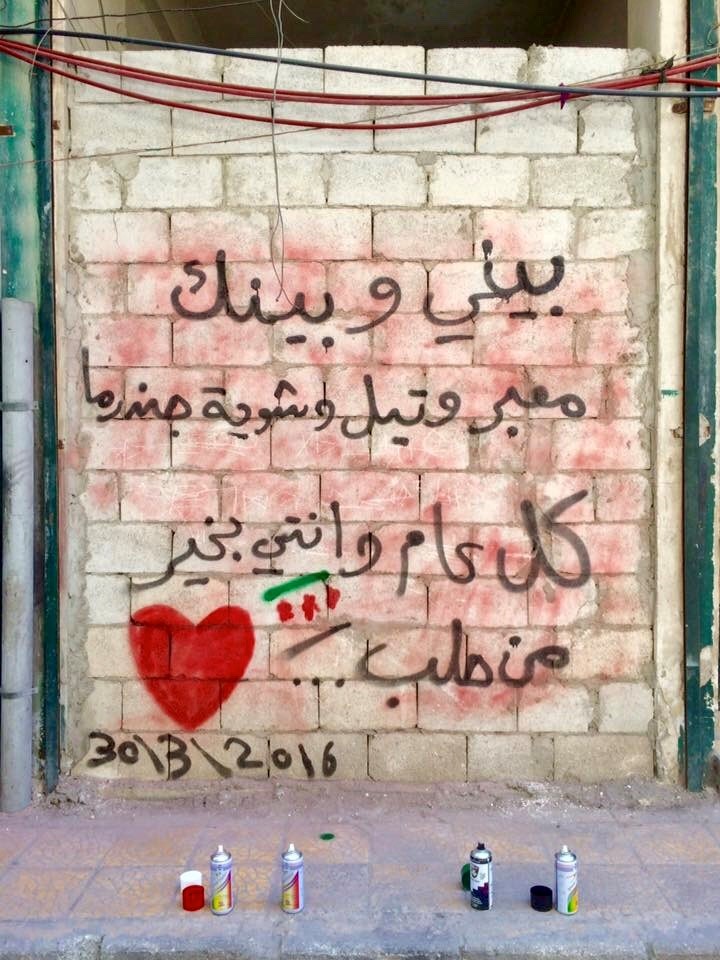 بيني و بينك
معبر وتيل وشوية جندرما
كل عام وانتي بخير
من حلب...
30\3\2016